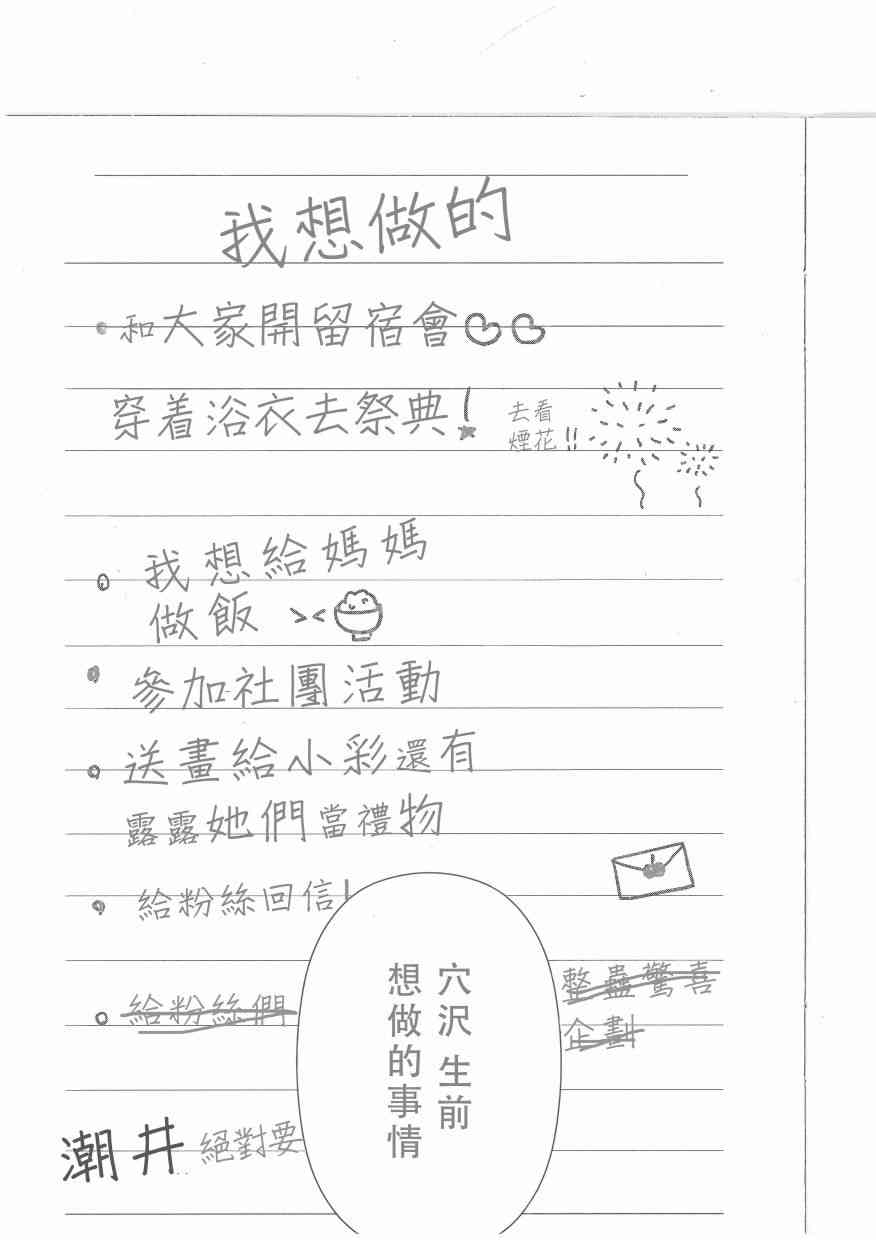 我想做的
和大家開留宿會
穿着浴衣去祭典!
去看
煙花!!
我想給媽媽
做飯 ><
參加社團活動
送畫給小彩還有
露露她們當禮物
給粉絲回信!
給粉絲們
整蠱驚喜
企劃
潮井 絕對要
穴沢 生前
想做的事情